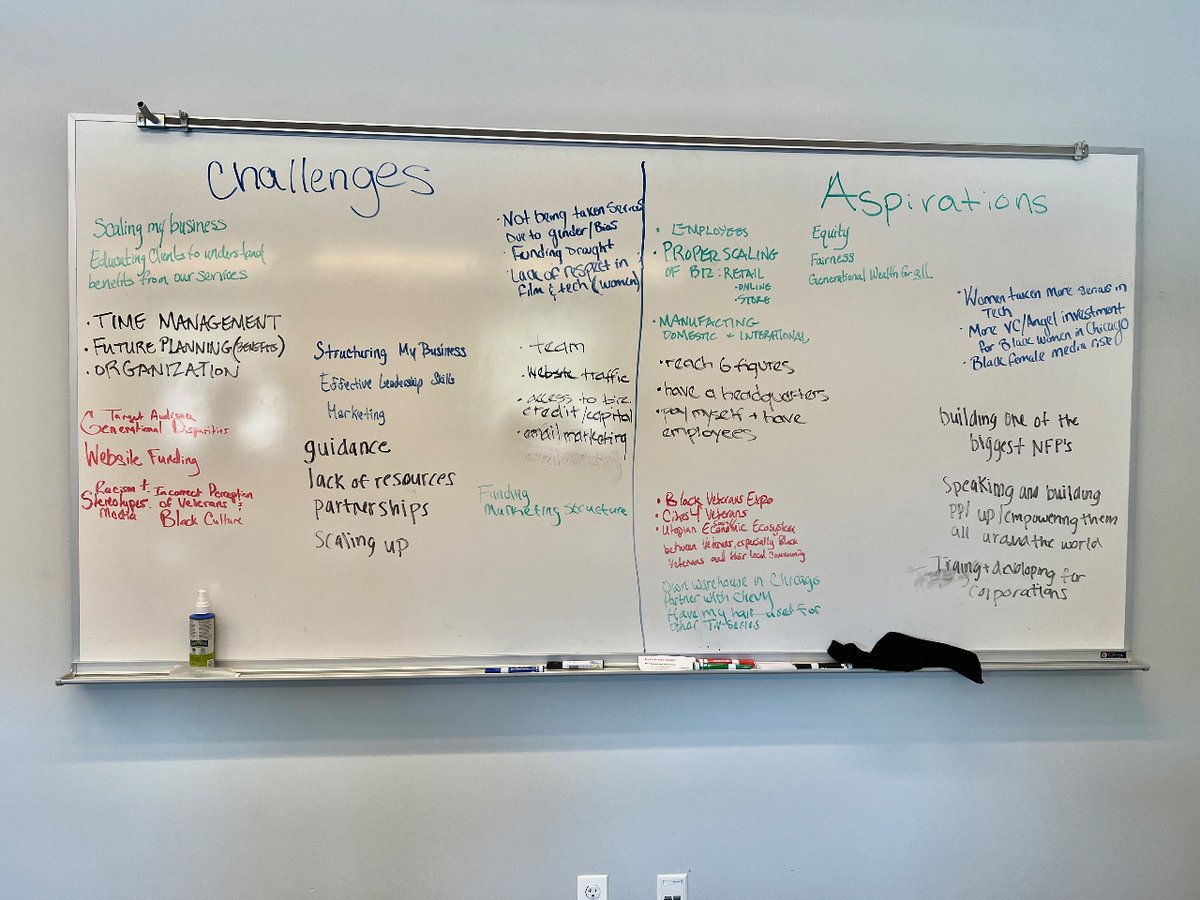 Challenges
Scaling my business
Educating Clients to understand
benefits from our services
· TIME MANAGEMENT
· FUTURE PLANNING (BENEFITS)
· ORGANIZATION
Target Audience
Generational Disparities
Website Funding
Racism + Incorrect Perception
Stereotypes of Veterans +
Media Black Culture
Structuring My Business
Effective Leadership Skills
Marketing
guidance
lack of resources
partnerships
scaling up
· Not being taken serious
Due to gender/Bias
· Funding Draught
· Lack of respect in
film & tech (women)
· team
· website traffic
· access to biz
credit/capital
· email marketing
Funding
Marketing Structure
Aspirations
· EMPLOYEES
· PROPER SCALING
OF BIZ: RETAIL
· ONLINE
· STORE
· MANUFACTING
DOMESTIC + INTERATIONAL
· reach 6 figures
· have a headquarters
· pay myself + have
employees
· Black Veterans Expo
· Cities 4 Veterans
· Utopian Economic Ecosystem
between Veterans, especially Black
Veterans and their local Community
Own warehouse in Chicago
Partner with Chevy
Have my hair used for
other TV series
Equity
Fairness
Generational Wealth for all
· Women taken more serious in
Tech
· More VC/Angel investment
for Black women in Chicago
· Black female media rise
building one of the
biggest NFP's
Speaking and building
ppl up/empowering them
all around the world
Traing + developing for
corporations